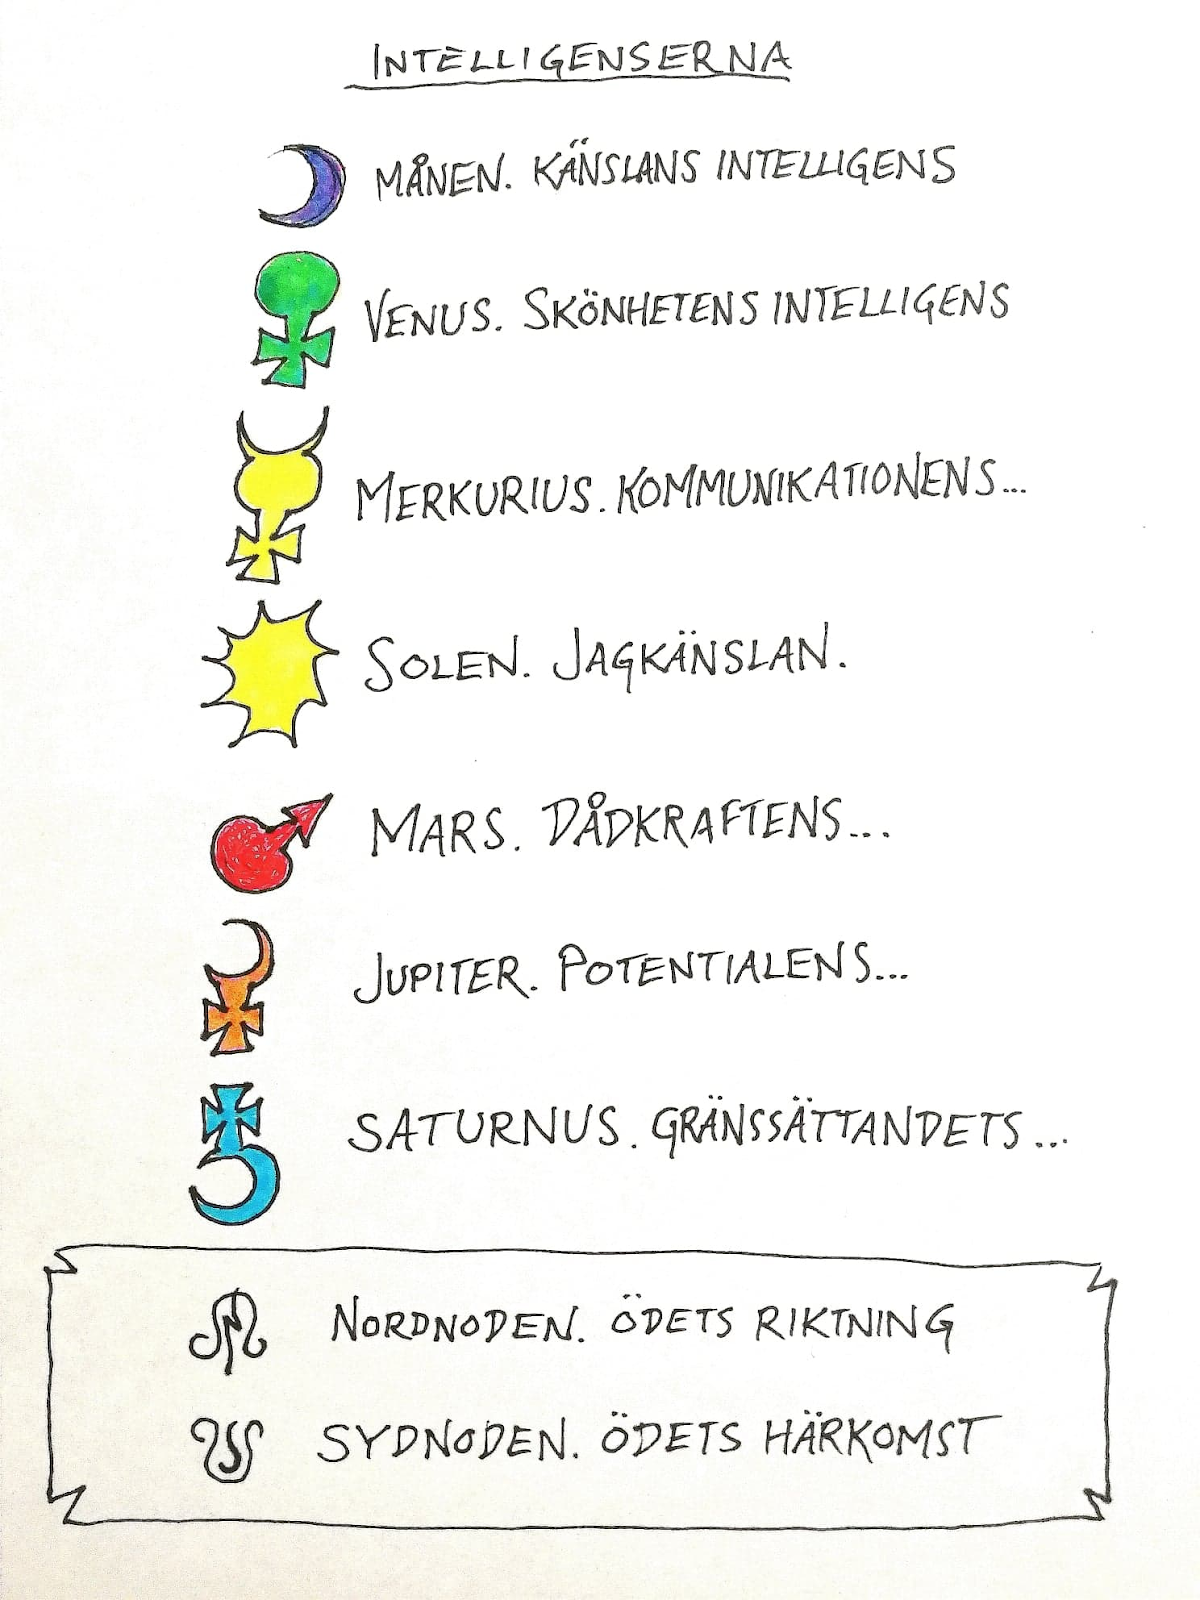 INTELLIGENSERNA
MÅNEN. KÄNSLANS INTELLIGENS
VENUS. SKÖNHETENS INTELLIGENS
MERKURIUS. KOMMUNIKATIONENS...
SOLEN. JAGKÄNSLAN.
MARS. DÅDKRAFTENS...
JUPITER. POTENTIALENS...
SATURNUS. GRÄNSSÄTTANDETS...
NORDNODEN. ÖDETS RIKTNING
SYDNODEN. ÖDETS HÄRKOMST